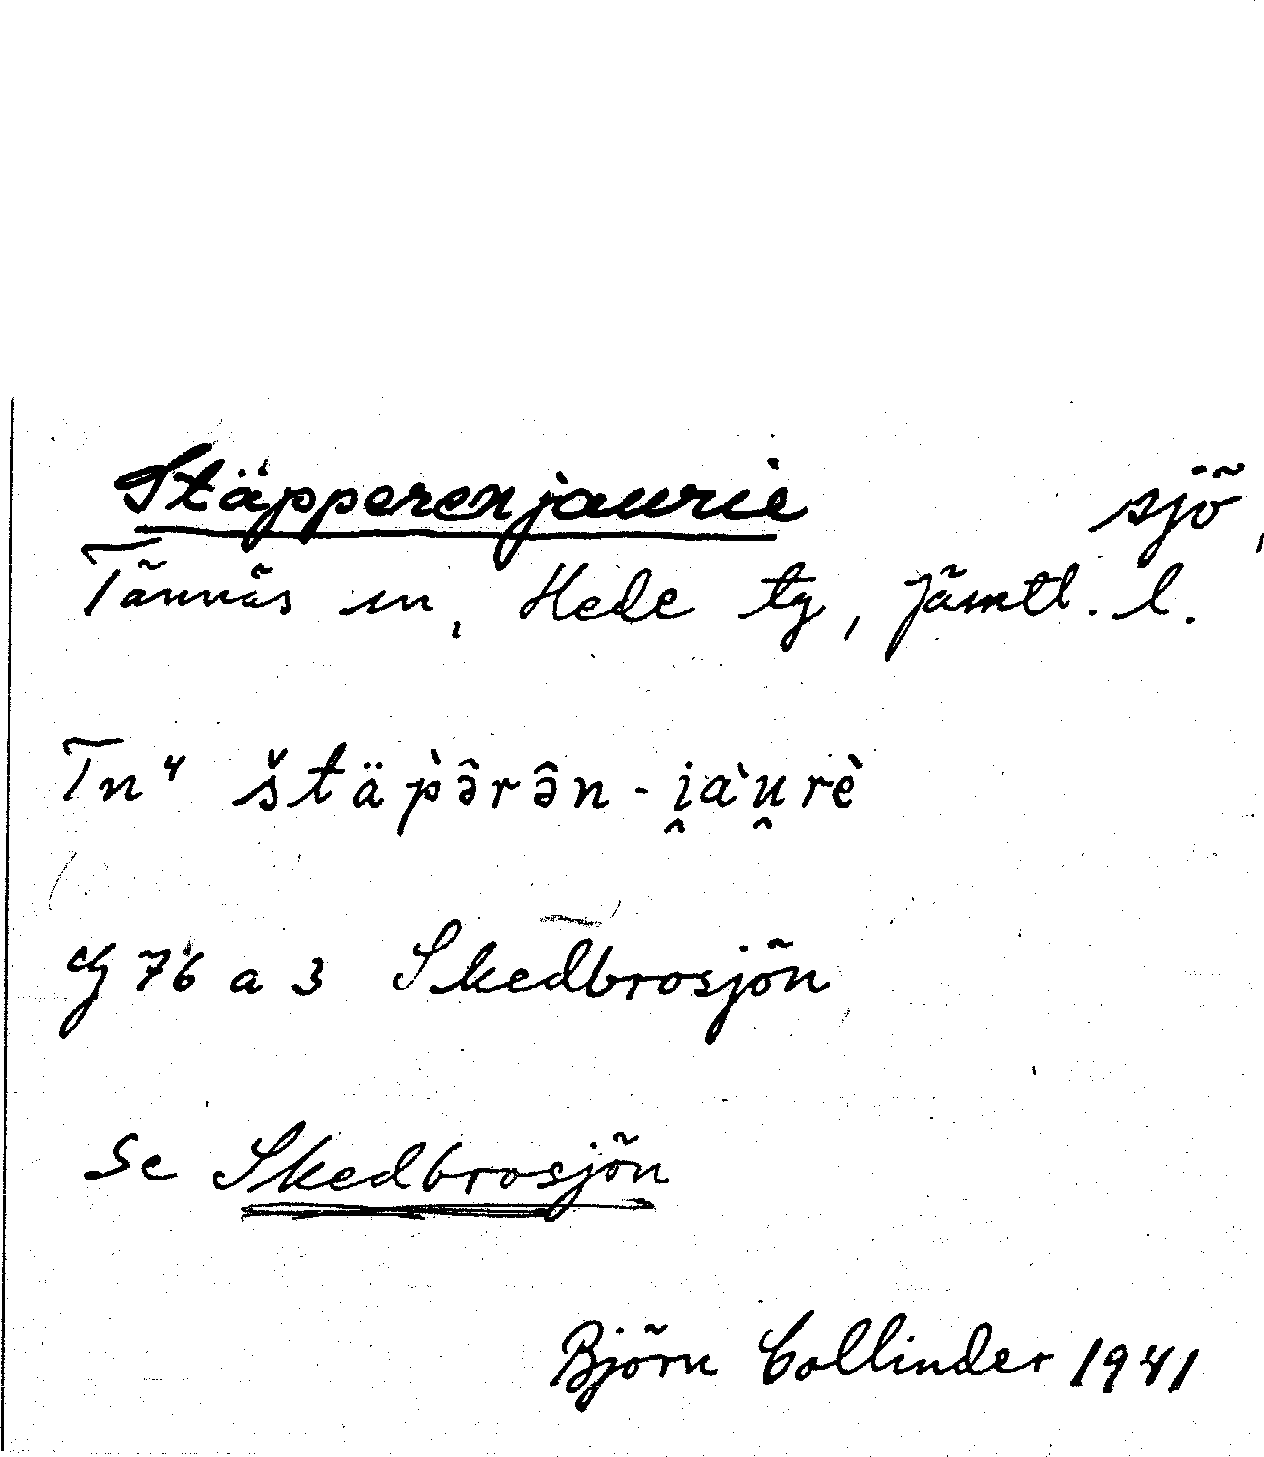 Stäpperenjaurie sjö,
Tännäs sn, Hede tg, Jämtl. l.
Tn⁴ štäp̀ə̂rə̂n-i̯a̔u̯rè
G 76 a 3 Skedbrosjön
Se Skedbrosjön
Björn Collinder 1941